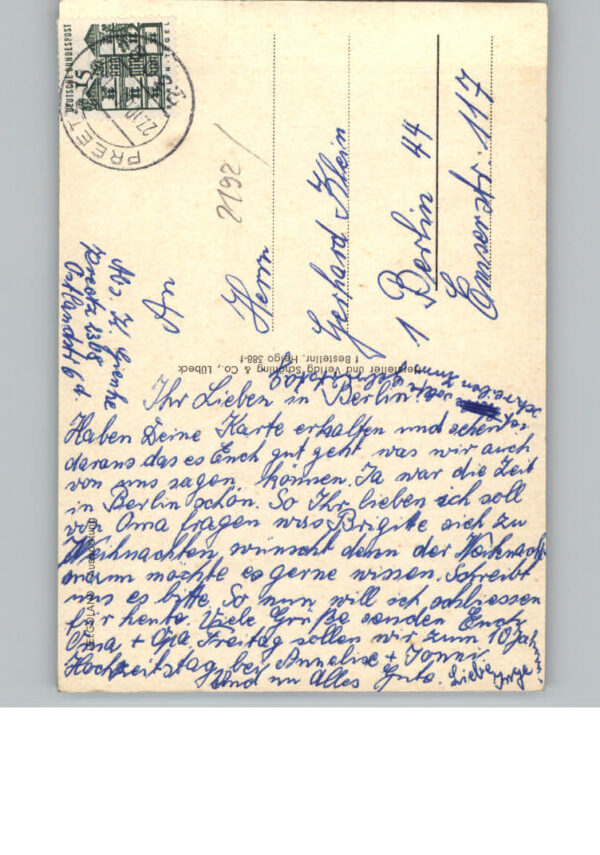 DEUTSCHE BUNDESPOST
15
TEGEL
PREETZ
27.10
2192/
An
Herrn
Gerhard Klein
1 Berlin 44
Emserstr. 117
Abs. H. Gienke
Preetz 2308
Ostlandstr 64
Hersteller und Verlag Schöning & Co., Lübeck
Bestellnr. Helgo 388
HELGOLAND
Ihr Lieben in Berlin
Haben Deine Karte erhalten und sehen
daraus das es Euch gut geht was wir auch
von uns sagen können. Ja war die Zeit
in Berlin schön. So Ihr lieben ich soll
von Oma fragen was Brigitte sich zu
Weihnachten wünscht denn der Weihnachts
mann möchte es gerne wissen. Schreibt
uns es bitte. So nun will ich schliessen
für heute. Viele Grüße senden Euch
Oma + Opa Freitag sollen wir zum 10 jähr
Hochzeitstag bei Annelise +
Und nu Alles Gute. Liebe
schreiben zum
Geburtstag